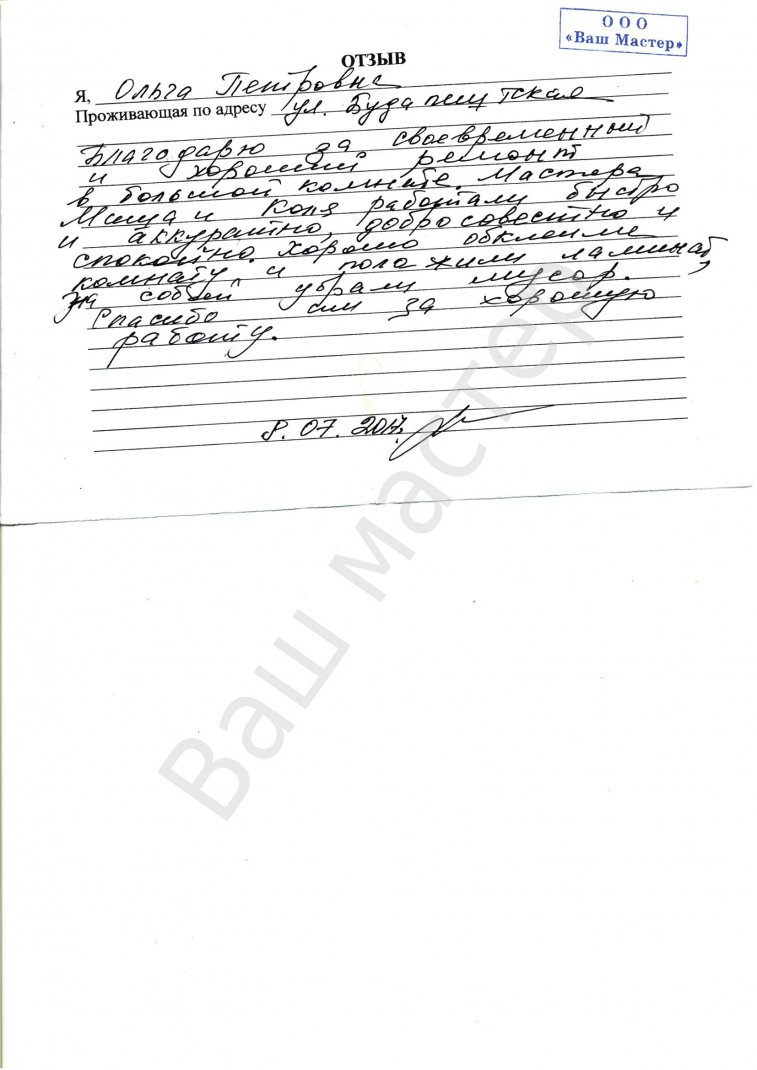 ООО
«Ваш Мастер»
ОТЗЫВ
Я, Ольга Петровна
Проживающая по адресу ул. Будапештская
Благодарю за своевременный
и хороший ремонт
в большой комнате. Мастера
Миша и Коля работали быстро
и аккуратно, добросовестно и
спокойно. Хорошо обклеили
комнату и положили ламинат,
за собой убрали мусор.
Спасибо им за хорошую
работу.
8.07.2017.
Ваш Мастер